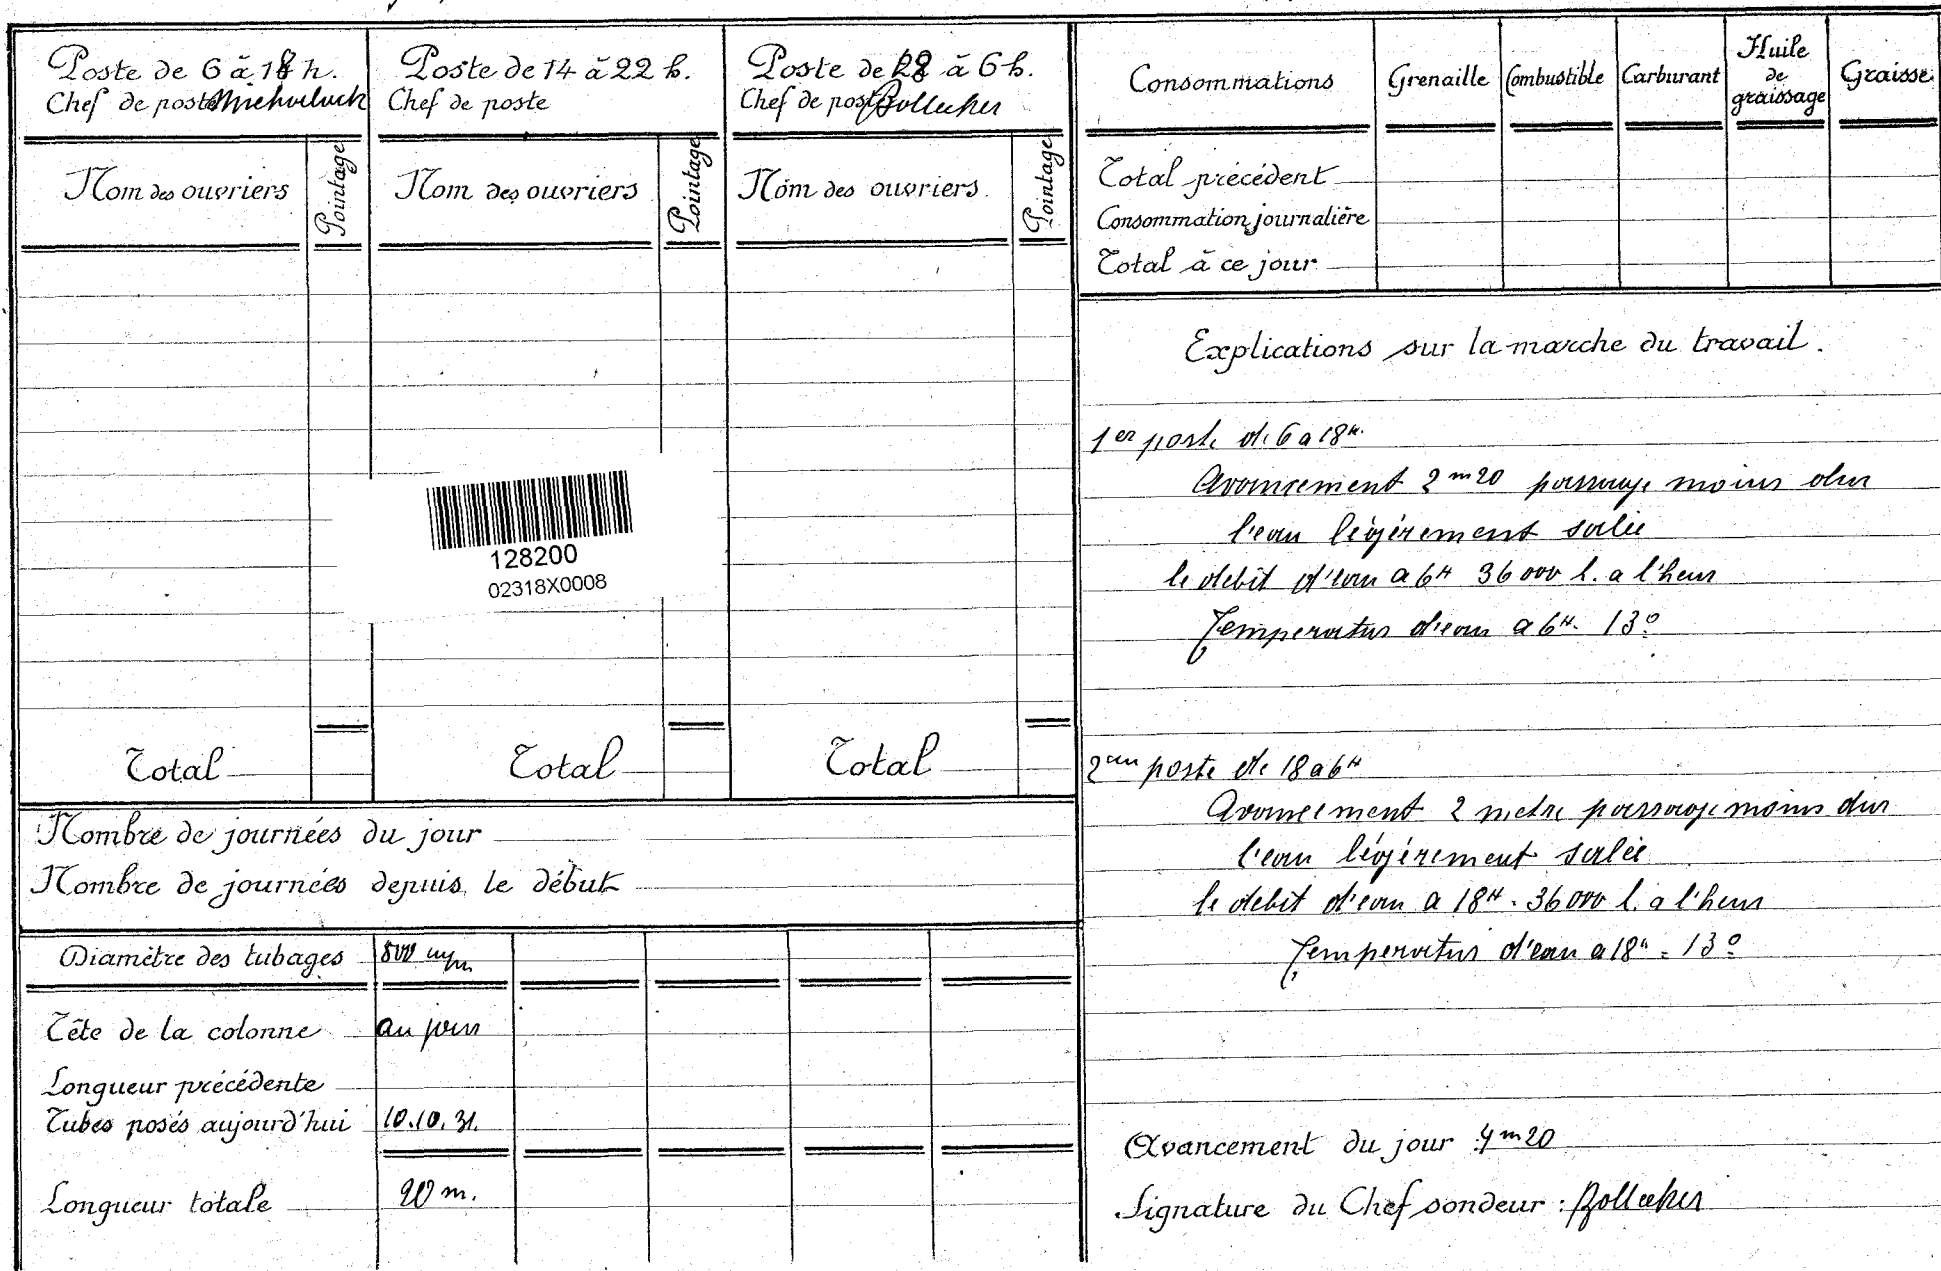 Poste de 6 à 18 h.
Chef de poste
Nom des ouvriers
Pointage
Total
Poste de 14 à 22 h.
Chef de poste
Nom des ouvriers
Pointage
Total
Poste de à 6 h.
Chef de poste Bollecker
Nom des ouvriers
Pointage
Total
128200
02318X0008
Nombre de journées du jour
Nombre de journées depuis le début
Diamètre des tubages
Tête de la colonne au jour
Longueur précédente
Tubes posés aujourd'hui 10.10.31.
Longueur totale 20 m.
Consommations Grenaille Combustible Carburant Huile de graissage Graisse
Total précédent
Consommation journalière
Total à ce jour
Explications sur la marche du travail.
1er poste de 6 a 18H.
Avancement 2m20 passage moins dur
l'eau légérement salée
le debit d'eau a 6H 36000 l. a l'heur
Temperatur d'eau a 6H. 13°
poste de 18 a 6H
Avancement 2 metre passage moins dur
l'eau légérement salée
le debit d'eau a 18H. 36000 l. a l'heur
Temperatur d'eau a 18H = 13°
Avancement du jour 4m20
Signature du Chef sondeur : Bollecker